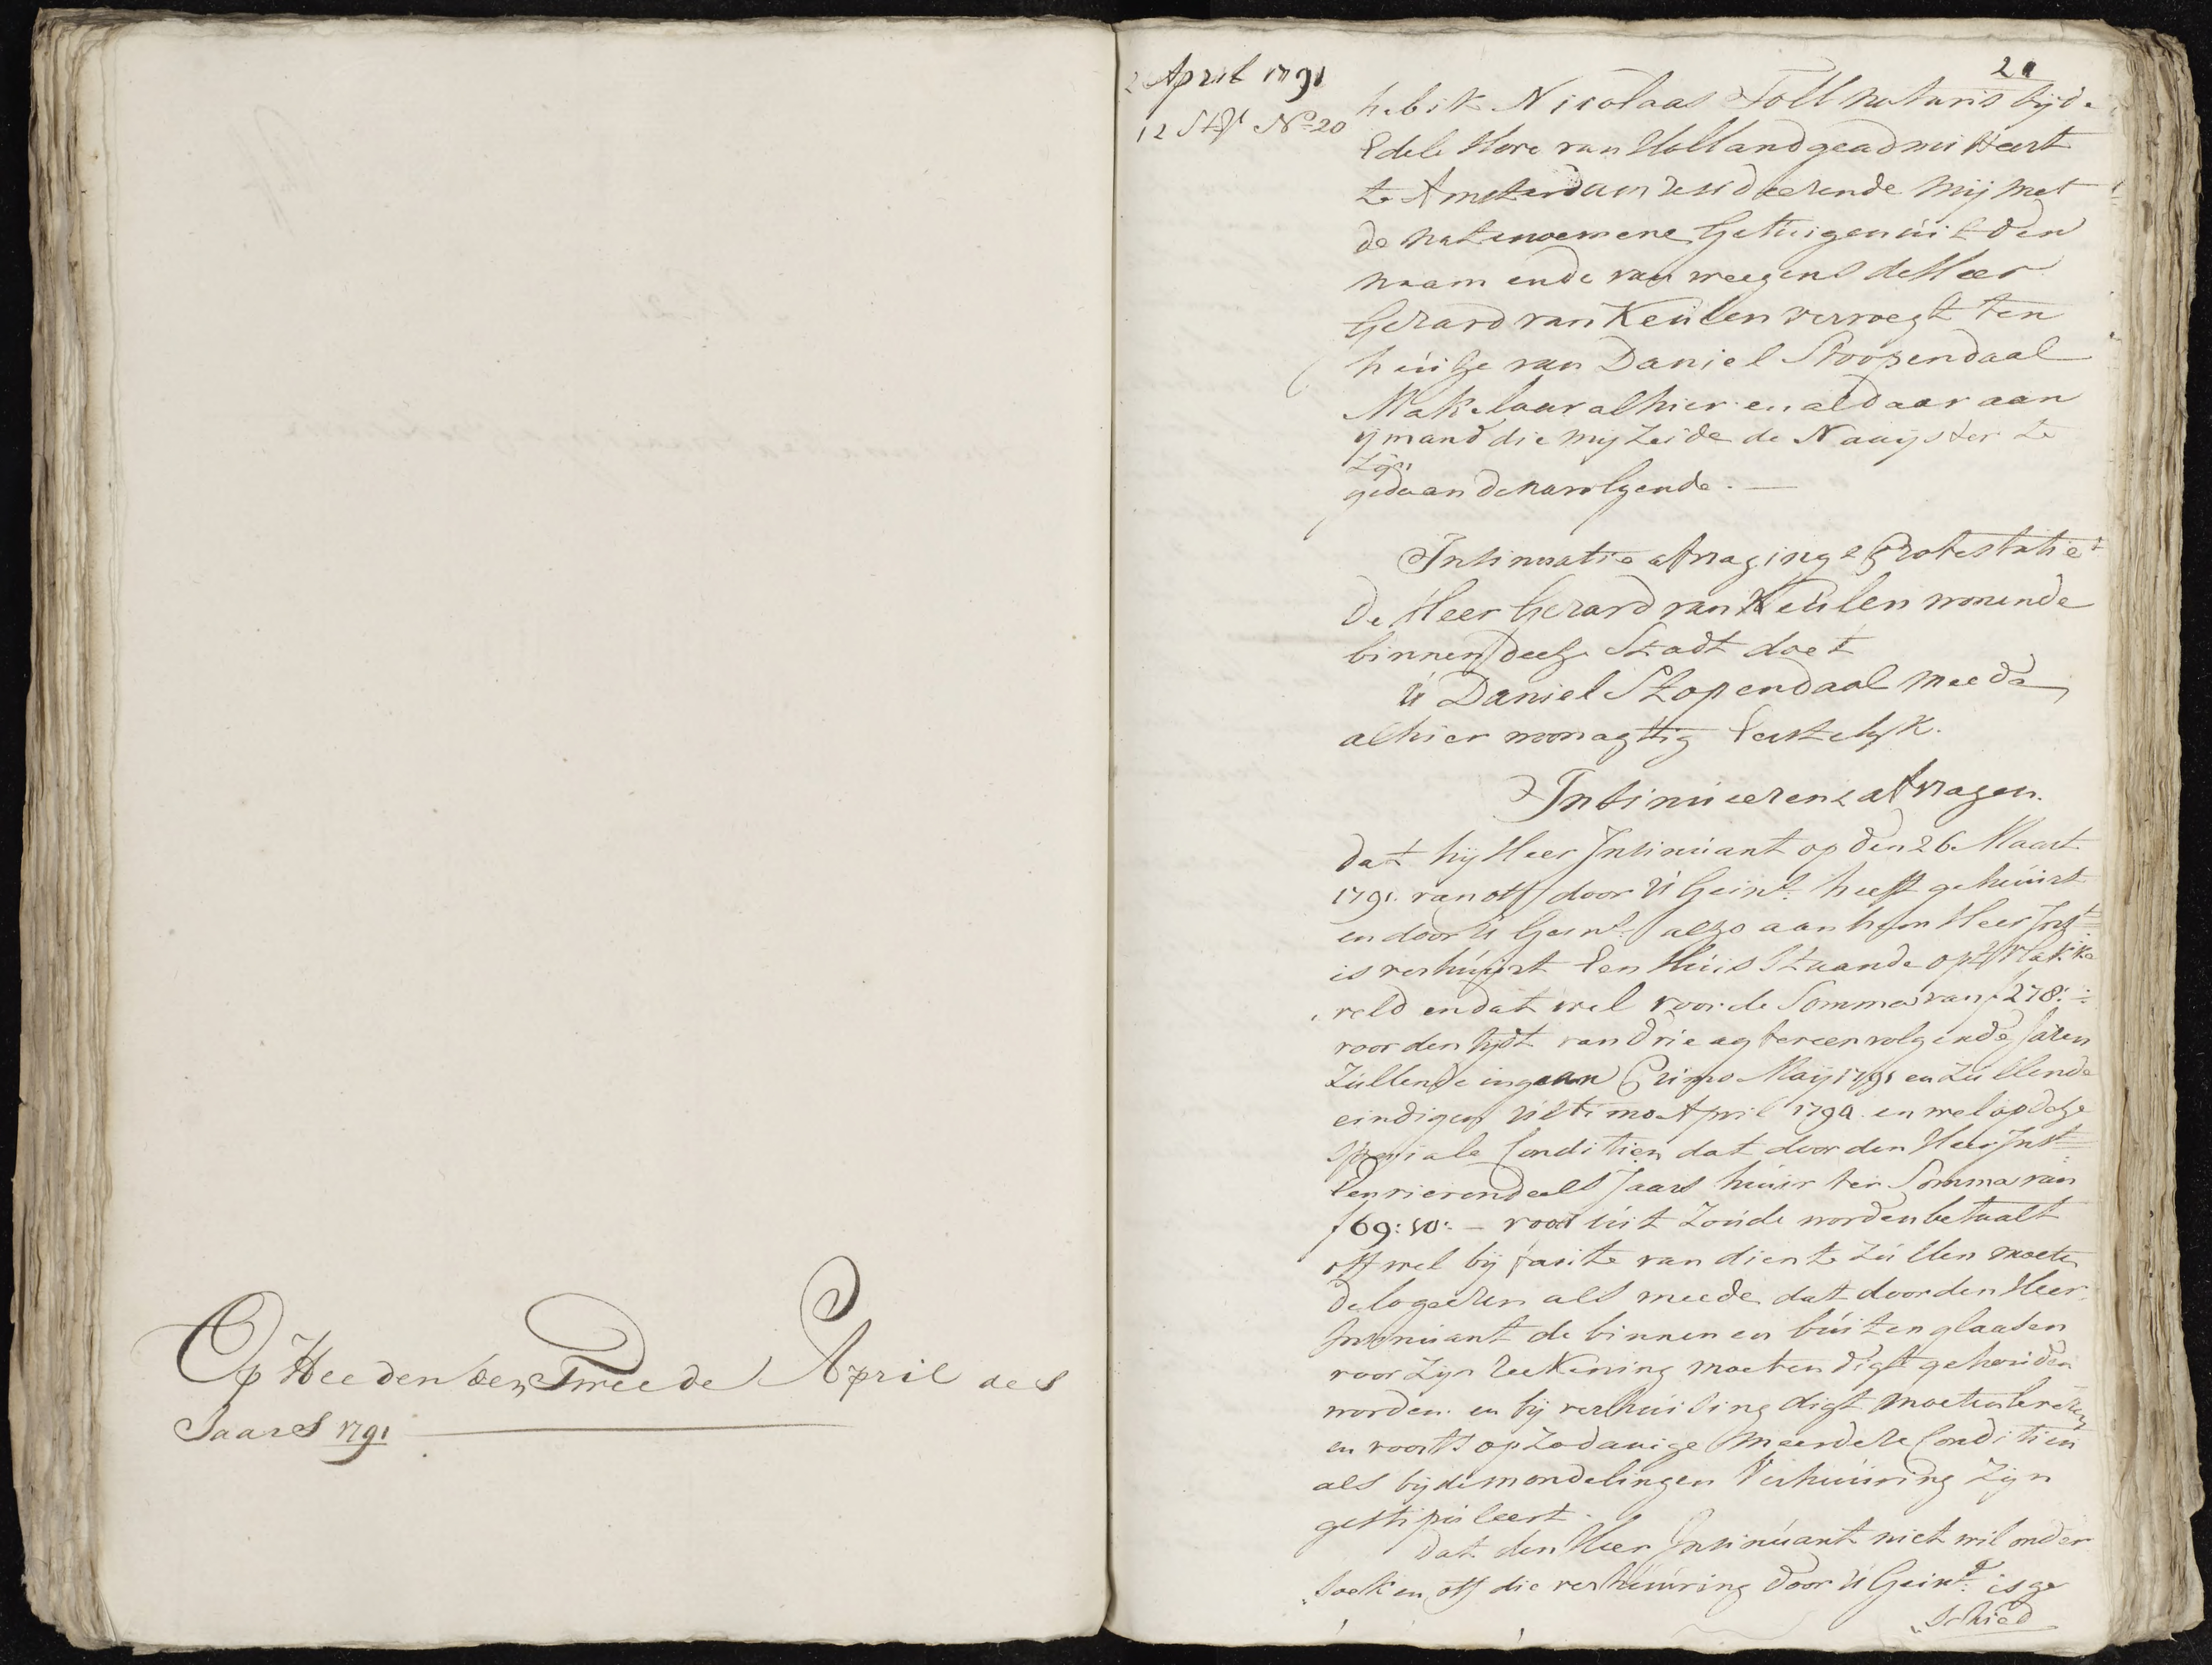 Op Heeden den Tweede April des
Jaars 1791
2 April 1791
12 St N.o 20
20
heb ik Nicolaas Toll notaris bij de
Edele Hove van Holland geadmitteert
te Amsterdam resideerende mij met
de natenoemene Getuigen uit den
naam ende van weegens de Heer
Gerard van Keulen vervoegt ten
huize van Daniel Stoopendaal
Makelaar alhier en aldaar aan
ijmand die mij zeide de Naaijster te
zijn
gedaan de navolgende.
Insinuatie afvraging & Protestatie
de Heer Gerard van Keulen wonende
binnen deeze Stadt doet
U Daniel Stopendaal meede
alhier woonagtig Eerstelyk.
Insinueeren & afvragen.
dat hij Heer Insinuant op den 26 Maart
1791. van off door U Geinst: heeft gehuurt
en door U Geinst: alzo aan hem Heer Inst
is verhuurt Een Huis Staande op 't Flakke
veld en dat wel voor de Somma van f 278:-:-
voor den tijdt van drie agtereenvolgende Jaren
Zullende ingaan Primo Maij 1791 en zullende
eindigen Ultimo April 1794. en wel op deze
Speciale Conditien dat door den Heer Inst
Een vierendeels Jaars huur ter Somma van
f 69:10:- voor uit zoude worden betaalt
off wel bij faute van dien te zullen moeten
delogeeren als meede dat door den Heer
Insinuant de binnen en buiten glaasen
voor zijn Reekening moeten digt gehouden
worden en bij verhuising digt moeten leveren
en voorts op zodanige meerdere Conditien
als bij de mondelingen Verhuuring zijn
gestipuleert.
dat den Heer Insinuant niet wil onder
soeken off die verhuuring door U Geinst: is ge
schied